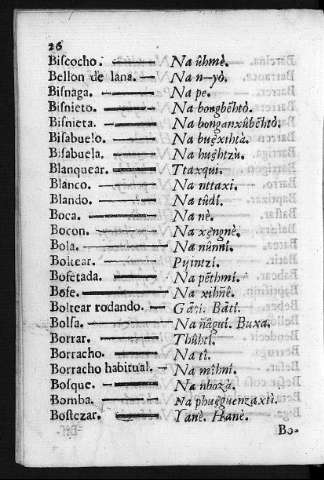 26
Biſcocho. Na ûhmè.
Bellon de lana. Na n—yò.
Biſnaga. Na pe.
Biſnieto. Na bongbẽhtò.
Biſnieta. Na bonganxûbẽhtò.
Biſabuelo. Na buęxihtà.
Biſabuela. Na huęhtzù.
Blanquear. Ttaxqui.
Blanco. Na nttaxi.
Blando. Na tûdi.
Boca. Na nè.
Bocon. Na xęngnè.
Bola. Na nûnni.
Boltear. Pyintzi.
Bofetada. Na pẽthmi.
Bofe. Na xihñê.
Boltear rodando. Gãti. Bãti.
Bolſa. Na ñãgui. Buxa.
Borrar. Thûhti.
Borracho. Na tì.
Borracho habitual. Na mîhni.
Boſque. Na nhozà.
Bomba. Na phuęguenzaxti.
Boſtezar. Yanè. Hanè.
Bo-